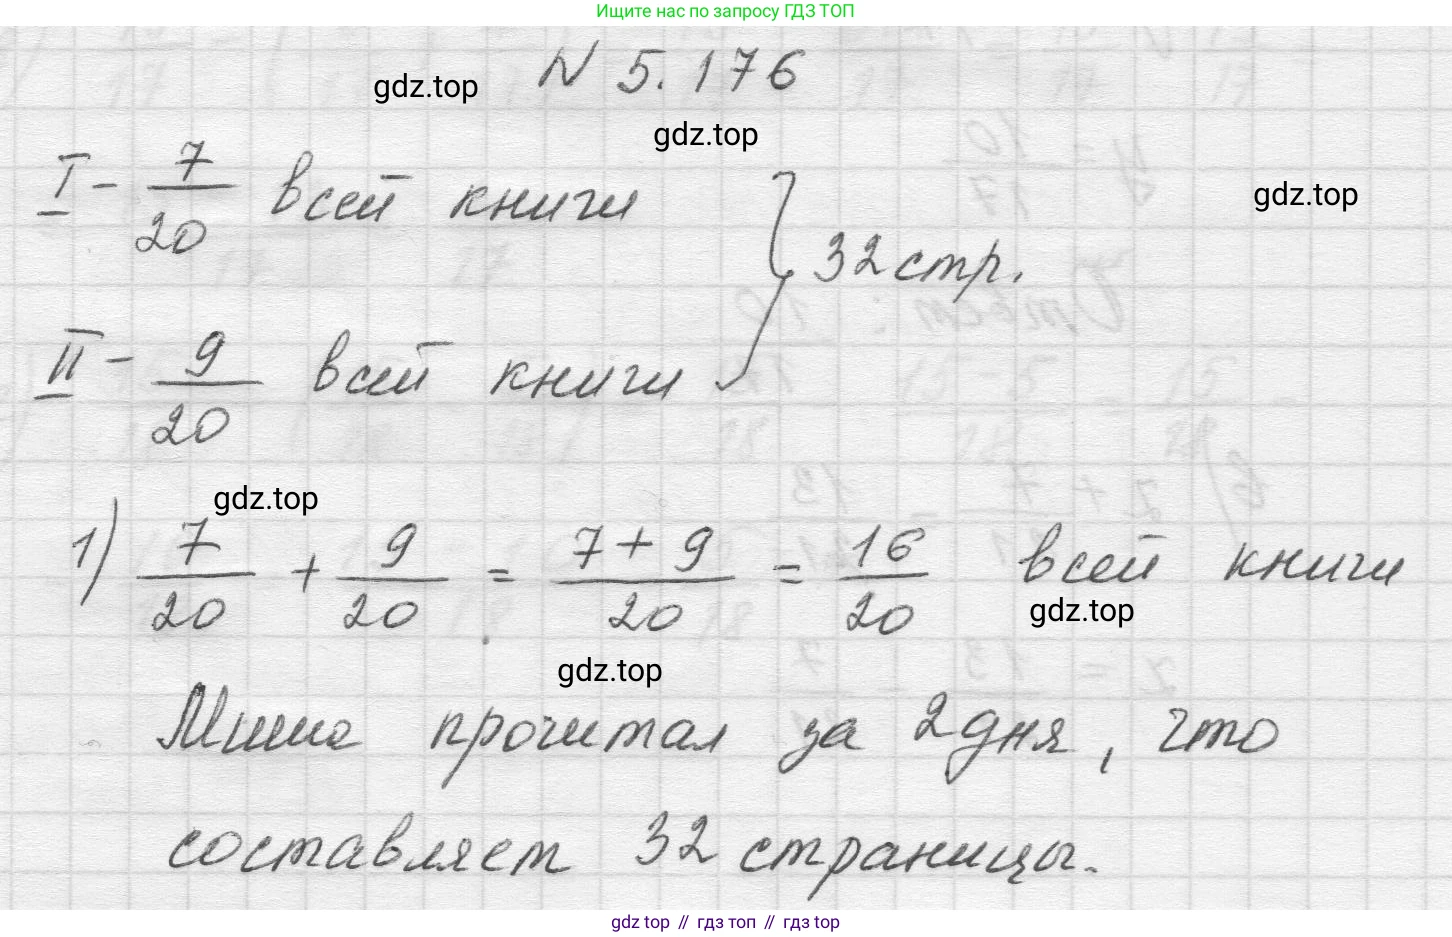 Ищите нас по запросу ГДЗ ТОП
N 5.176
gdz.top
gdz.top
I - 7/20 всей книги
gdz.top
32 стр.
II - 9/20 всей книги
gdz.top
1) 7/20 + 9/20 = 7+9/20 = 16/20 всей книги
gdz.top
gdz.top
Миша прочитал за 2 дня, что
составляет 32 страницы.
gdz top // гдз топ // гдз top